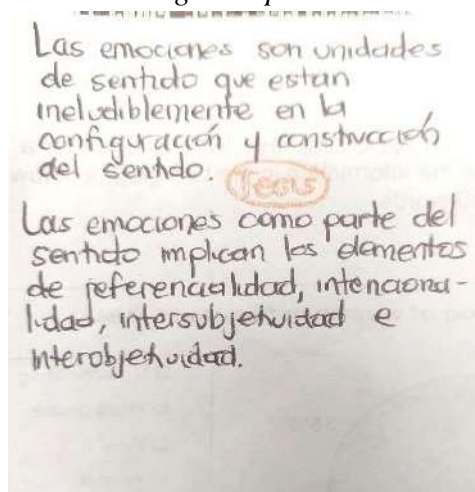 Las emociones son unidades
de sentido que estan
ineludiblemente en la
configuración y construcción
del sentido. Tesis
Las emociones como parte del
sentido implican los elementos
de referencialidad, intenciona-
lidad, intersubjetividad e
interobjetividad.